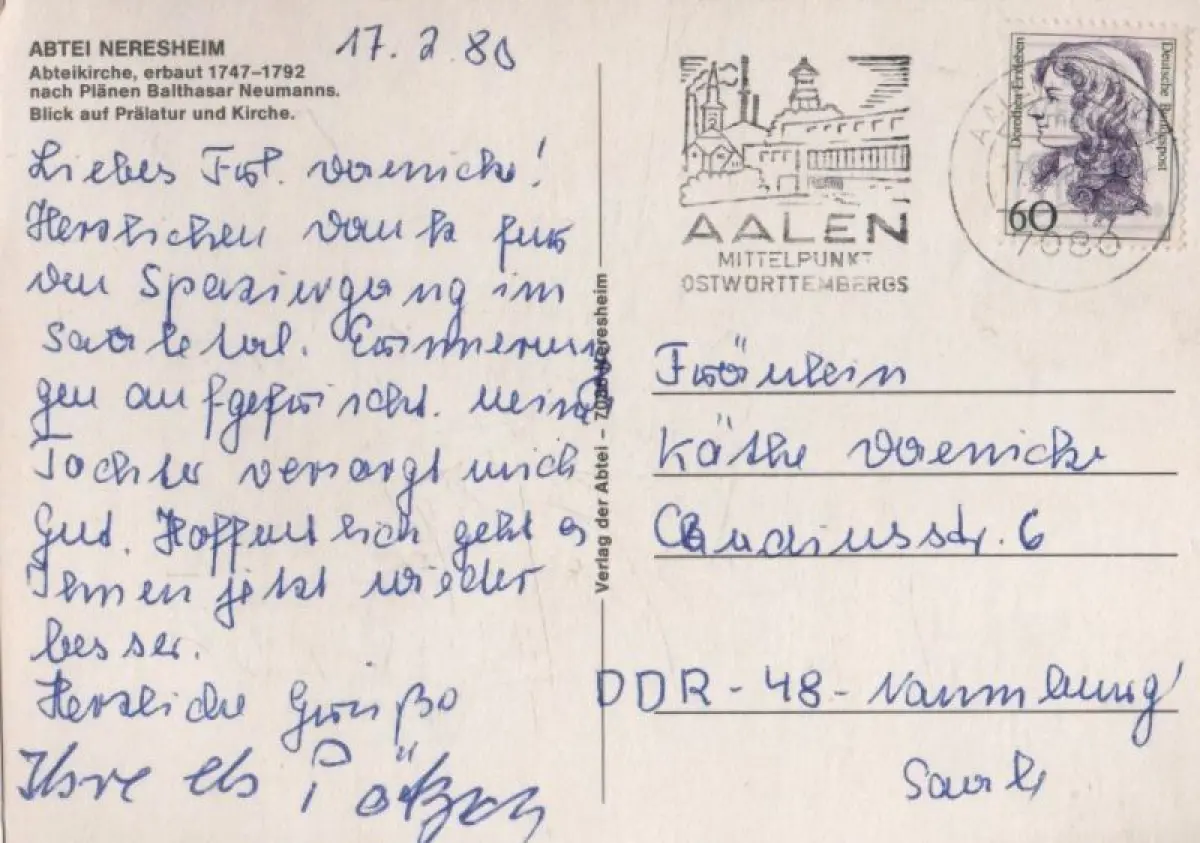 ABTEI NERESHEIM
Abteikirche, erbaut 1747–1792
nach Plänen Balthasar Neumanns.
Blick auf Prälatur und Kirche.
Liebes Frl.
Herzlichen Dank für
den Spaziergang im
Saaletal. Erinnerun
gen aufgefrischt. Meine
Tochter versorgt mich
gut. Hoffentlich geht es
Ihnen jetzt wieder
besser.
Herzliche Grüße
Ihre
Verlag der Abtei – Neresheim
AALEN
MITTELPUNKT
OSTWÜRTTEMBERGS
Dorothea Erxleben
Deutsche Bundespost
60
7080
Fräulein
Käthe
Claudiusstr. 6
DDR - 48 - Naumburg
Saale